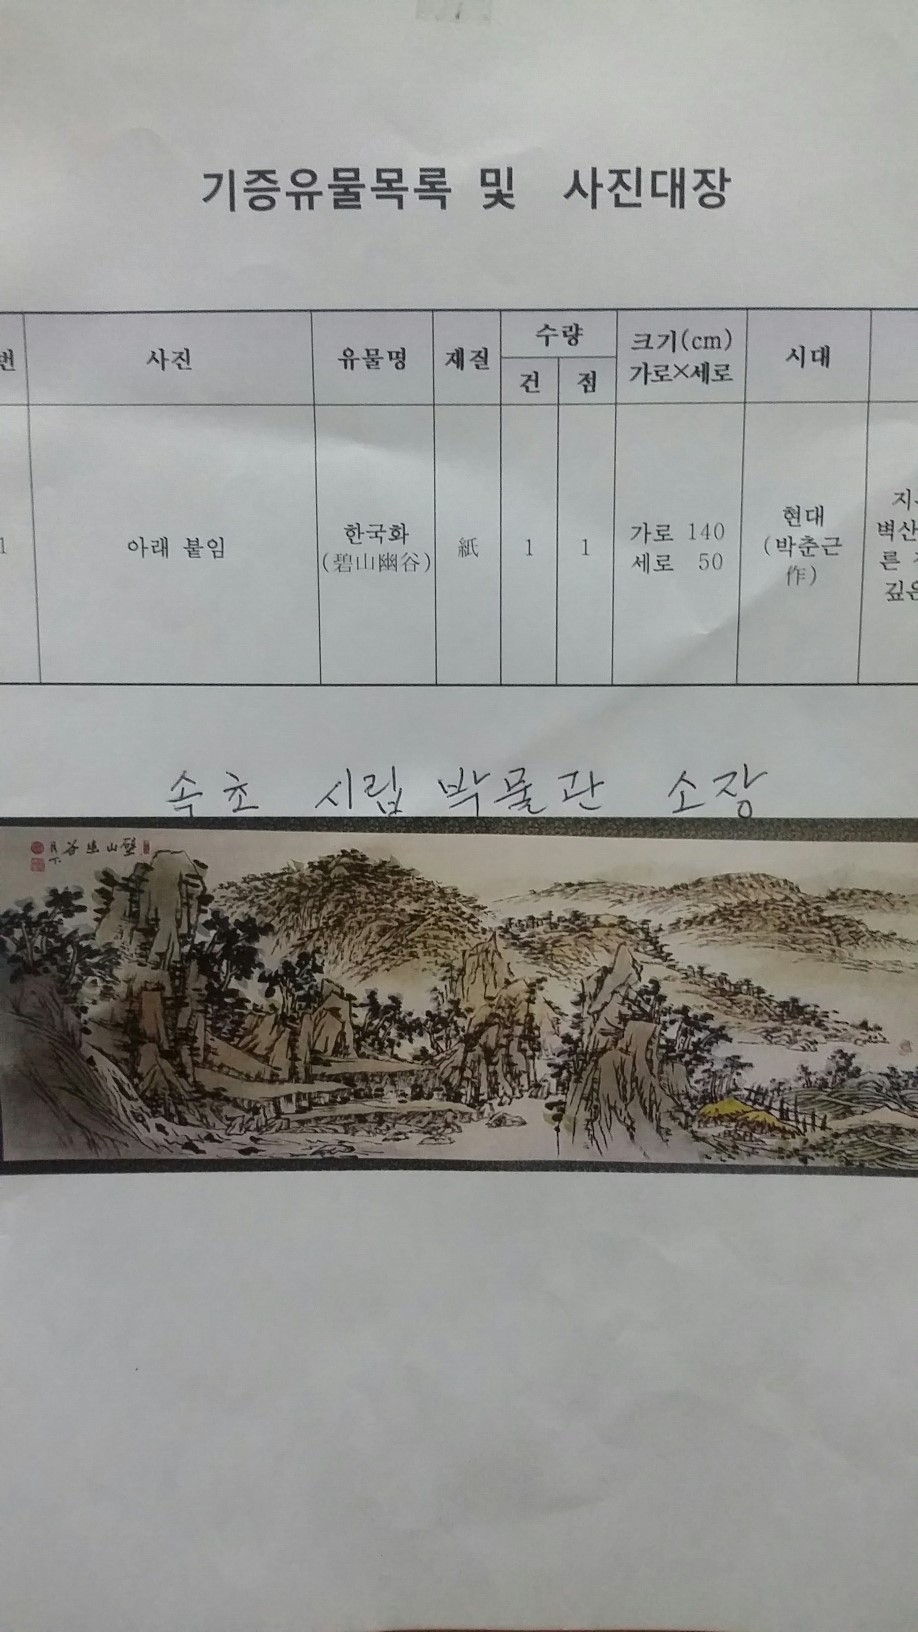 기증유물목록 및 사진대장
번 사진 유물명 재질 수량 크기(cm) 시대
건 점 가로×세로
1 아래 붙임 한국화 紙 1 1 가로 140 현대
(碧山幽谷) 세로 50 (박춘근
作)
벽산
른
깊은
속초 시립 박물관 소장
碧山幽谷